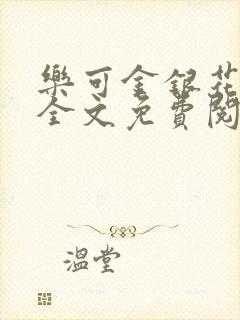 樂可金銀花
全文免費閱
溫堂